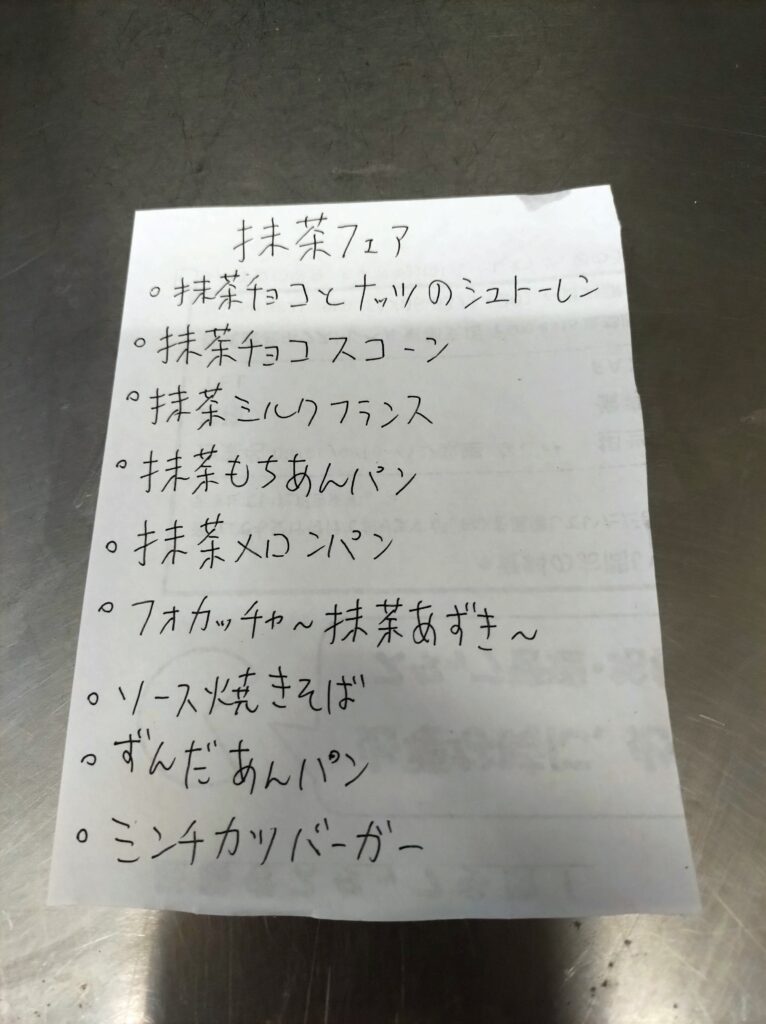 抹茶フェア
。抹茶チョコとナッツのシュトーレン
。抹茶チョコスコーン
。抹茶ミルクフランス
。抹茶もちあんパン
。抹茶メロンパン
。フォカッチャ~抹茶あずき~
。ソース焼きそば
。ずんだあんパン
。ミンチカツバーガー